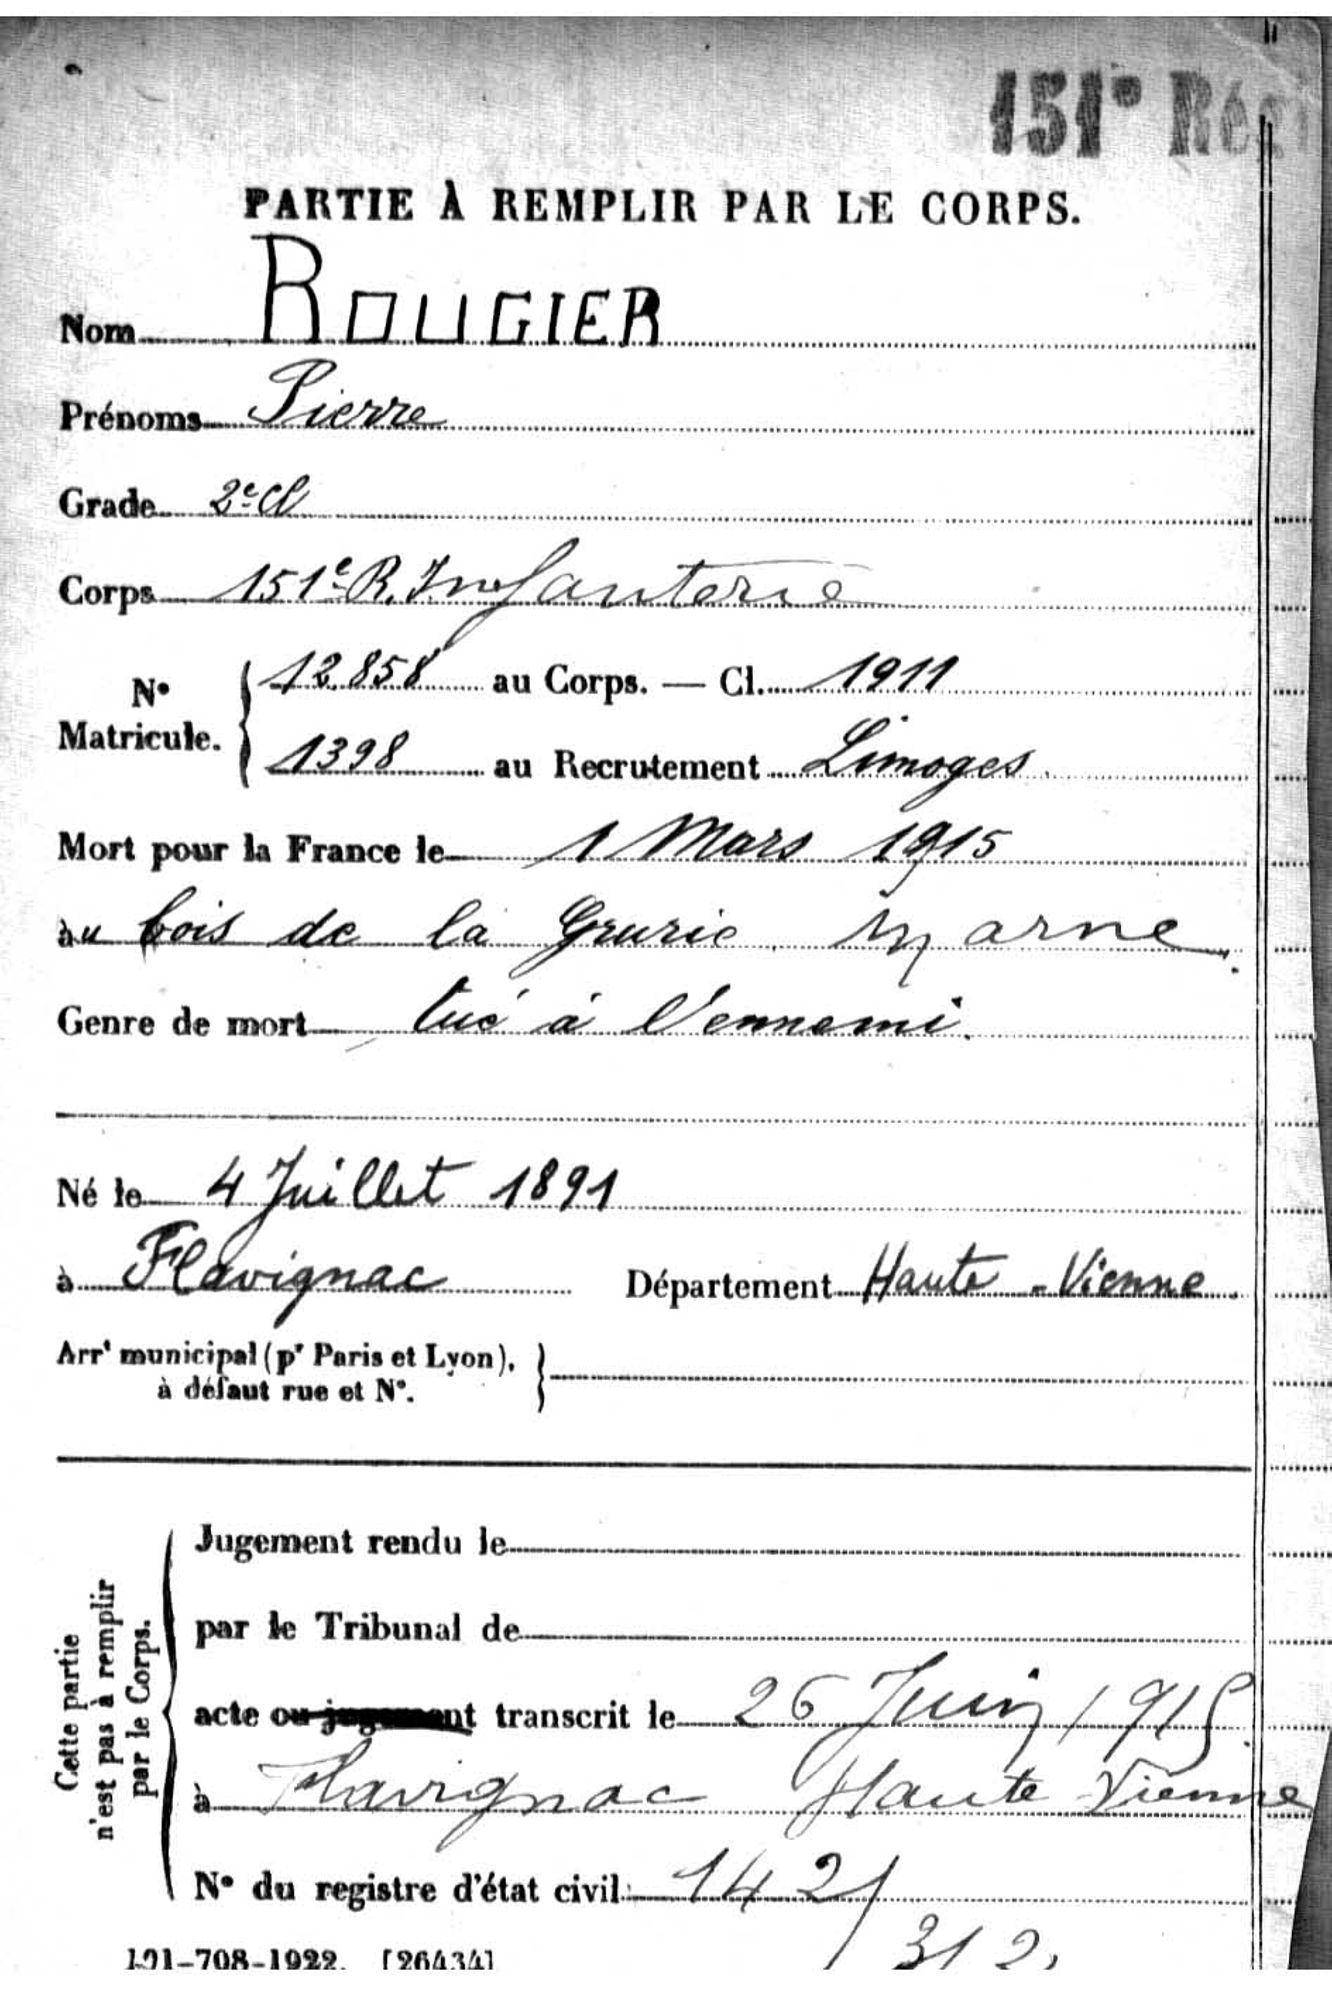 151e Rég
PARTIE À REMPLIR PAR LE CORPS.
Nom ROUGIER
Prénoms Pierre
Grade 2e cl
Corps 151e R. Infanterie
N° Matricule. 12.858 au Corps. — Cl. 1911
1398 au Recrutement Limoges
Mort pour la France le 1 Mars 1915
au bois de la Grurie Marne
Genre de mort tué à l'ennemi.
Né le 4 Juillet 1891
à Flavignac Département Haute-Vienne
Arrt municipal (pr Paris et Lyon),
à défaut rue et N°.
Cette partie
n'est pas à remplir
par le Corps.
Jugement rendu le
par le Tribunal de
acte ou jugement transcrit le 26 Juin 1915
à Flavignac Haute Vienne
N° du registre d'état civil 142/
312
101-708-1922. [26434]